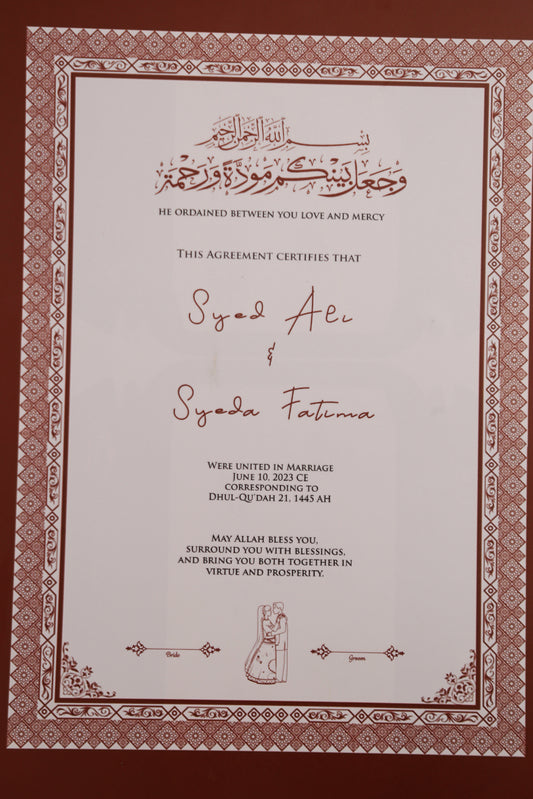 بسم الله الرحمن الرحيم
وجعل بينكم مودة ورحمة
HE ORDAINED BETWEEN YOU LOVE AND MERCY
THIS AGREEMENT CERTIFIES THAT
Syed Ali
&
Syeda Fatima
WERE UNITED IN MARRIAGE
JUNE 10, 2023 CE
CORRESPONDING TO
DHUL-QU'DAH 21, 1445 AH
MAY ALLAH BLESS YOU,
SURROUND YOU WITH BLESSINGS,
AND BRING YOU BOTH TOGETHER IN
VIRTUE AND PROSPERITY.
Bride Groom